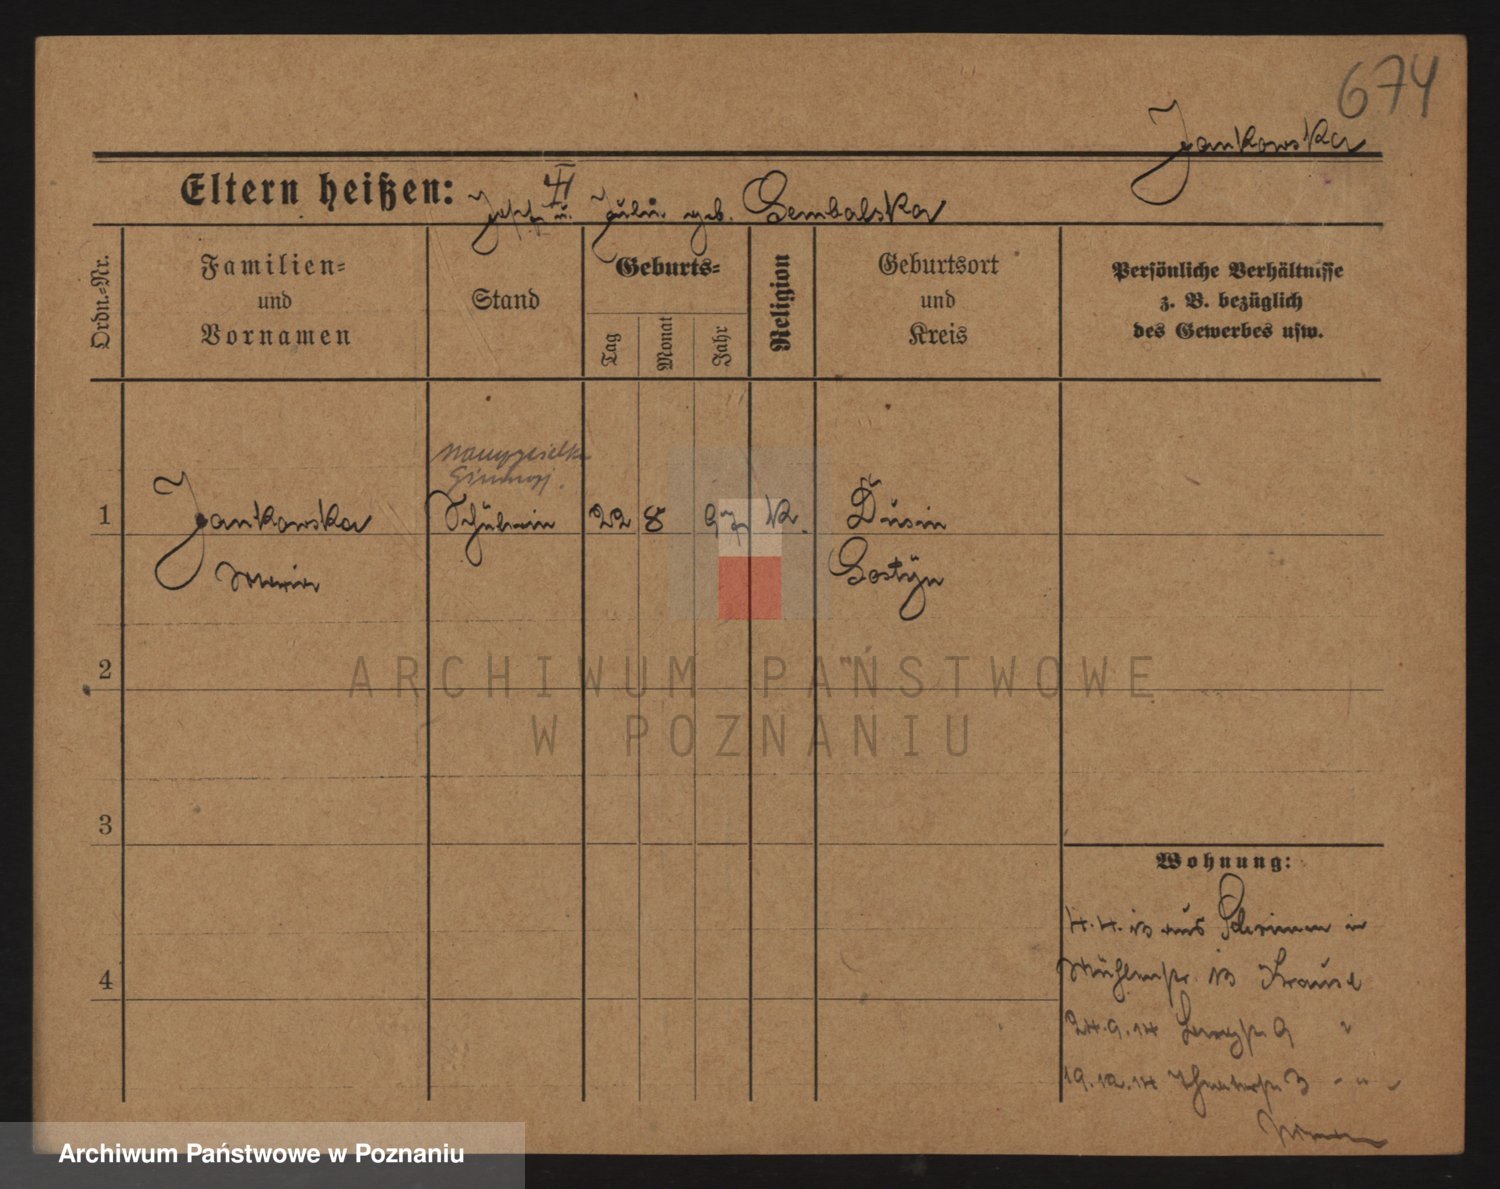 674
Jankowska
II
Eltern heißen: Josef u. Julie geb. Gembalska
Ordn.-Nr.
Familien-
und
Vornamen
Stand
Geburts-
Tag
Monat
Jahr
Religion
Geburtsort
und
Kreis
Persönliche Verhältnisse
z. B. bezüglich
des Gewerbes usw.
1
Jankowska
Maria
Schülerin
22
8
97
K.
Dusin
Gostÿn
2
3
4
Wohnung:
4.4.13 aus Schrimm in
Mühlenstr. 13 Krause
24.9.14
9 "
19.12.14 Theaterstr. 3 - " -
ARCHIWUM PAŃSTWOWE
W POZNANIU
Archiwum Państwowe w Poznaniu